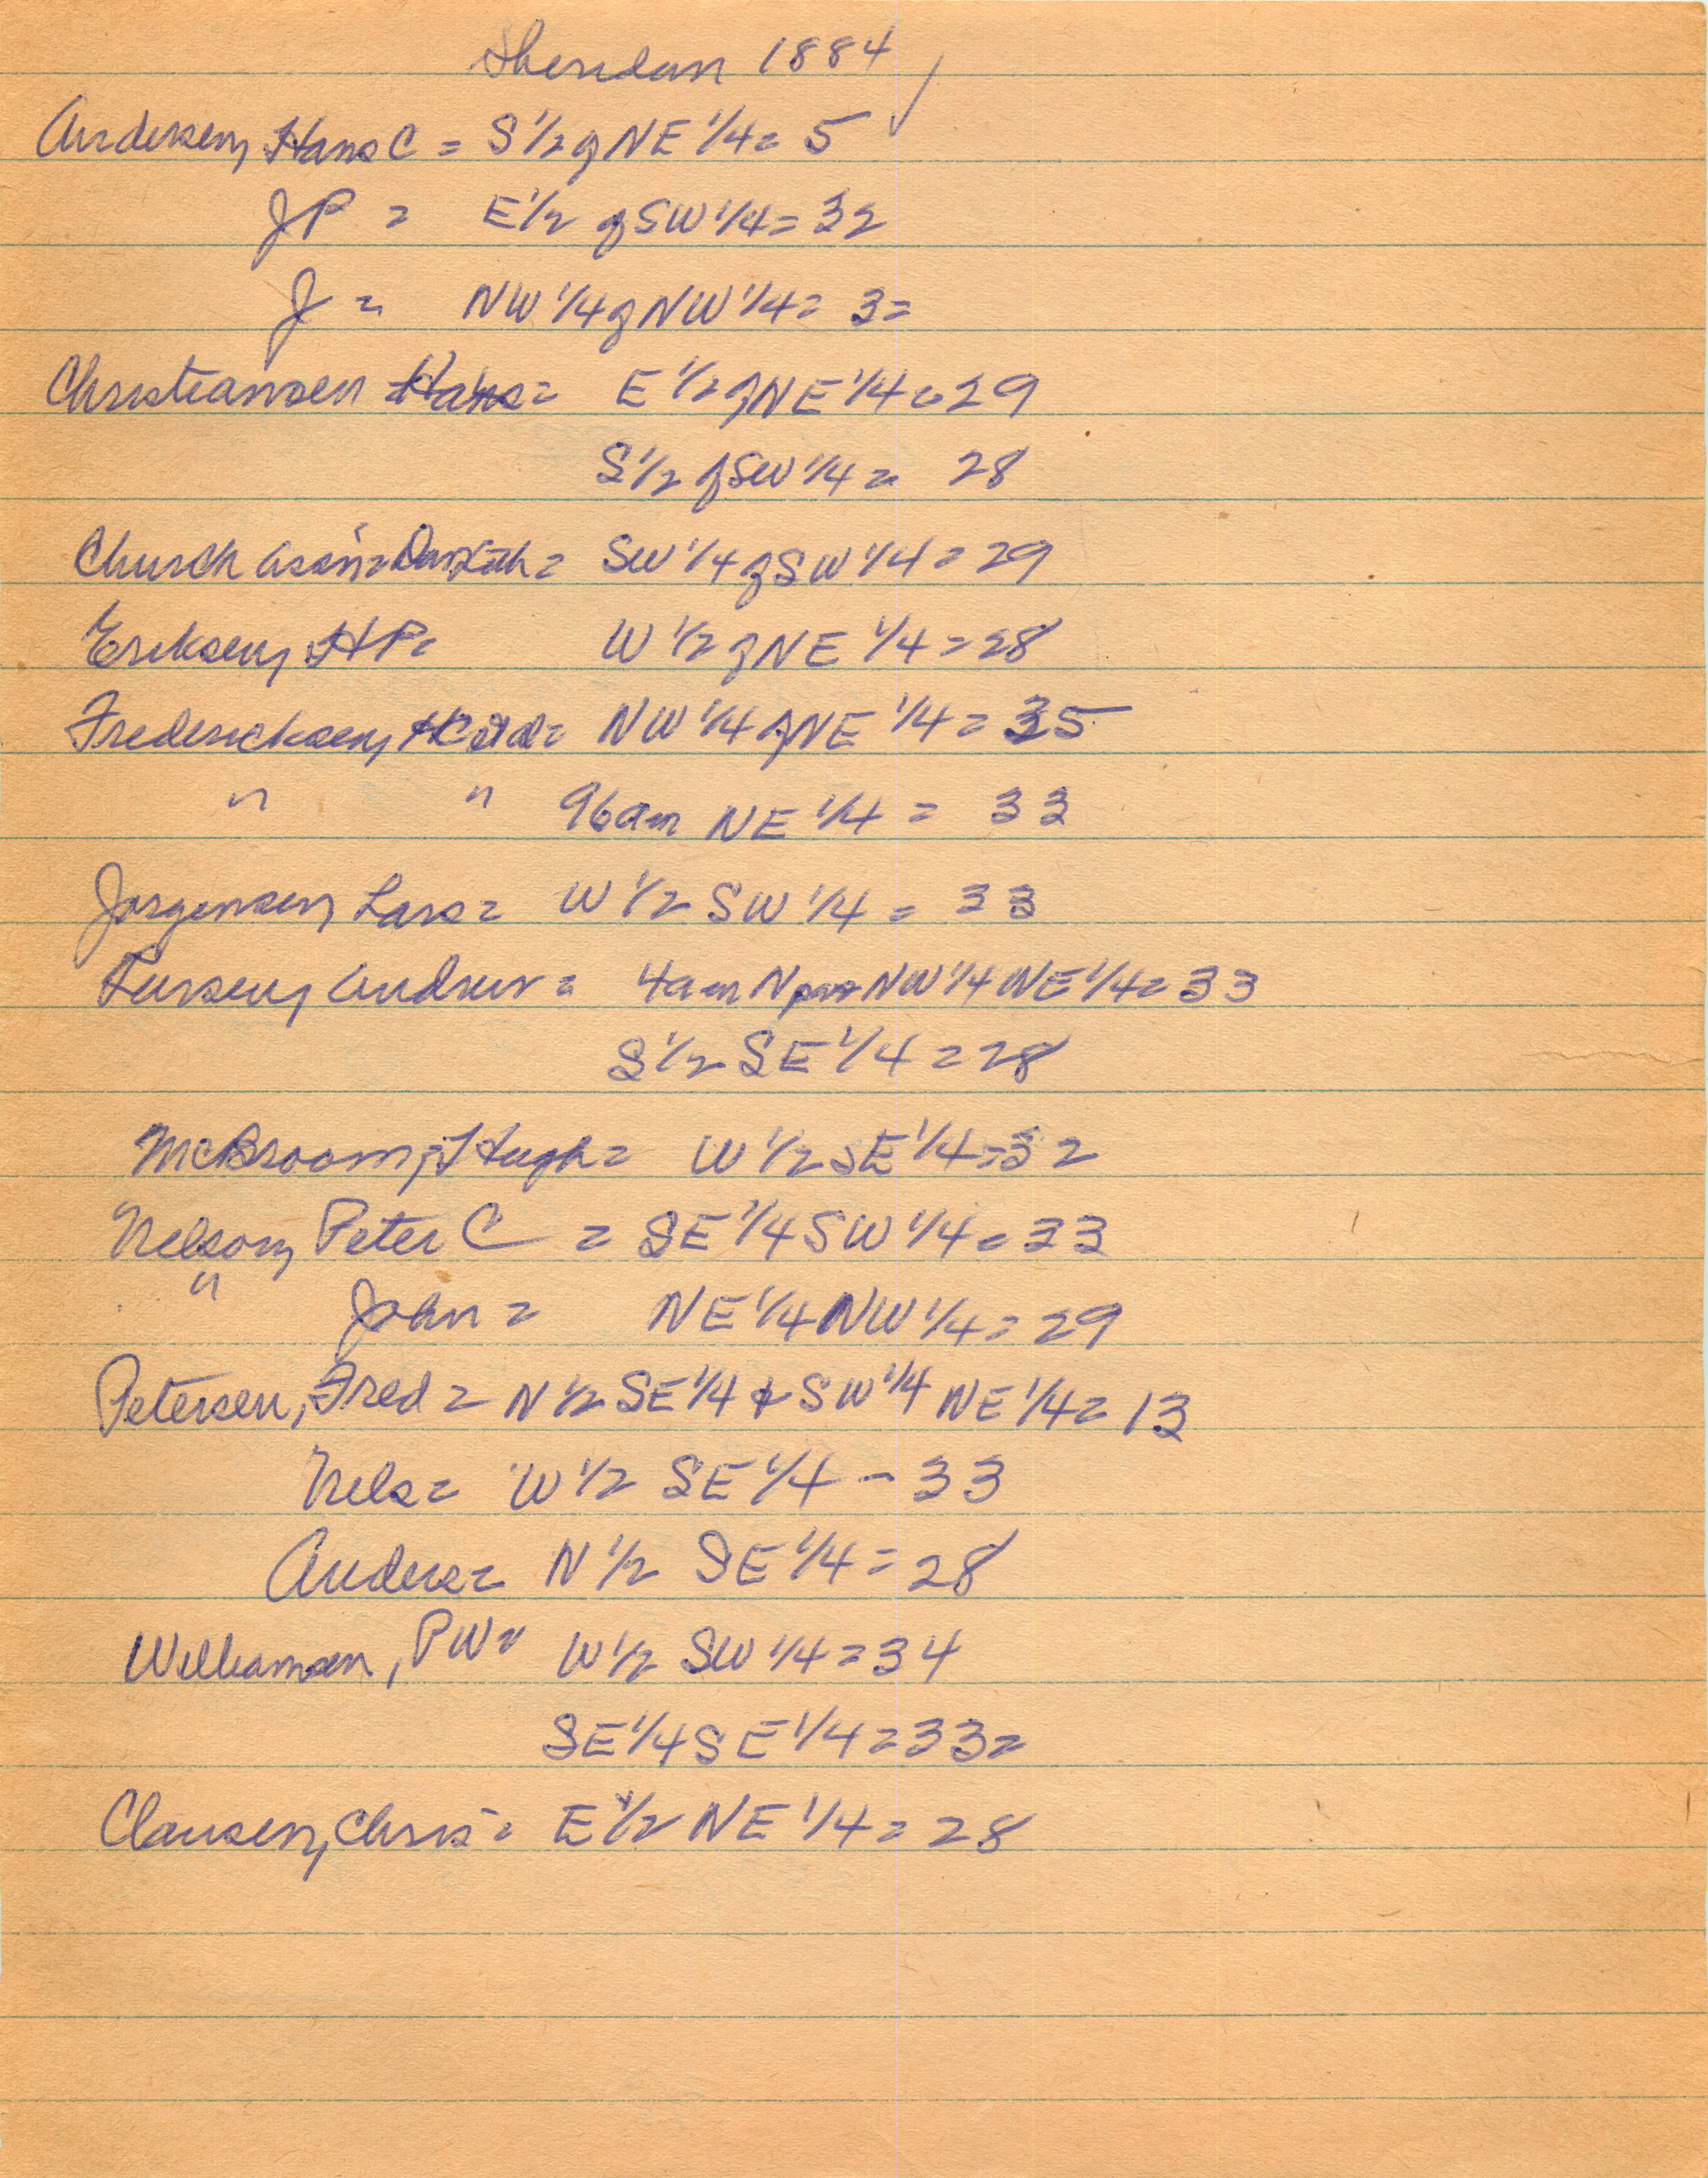 Sheridan 1884
Andersen, Hans C = S 1/2 of NE 1/4 = 5
JP = E 1/2 of SW 1/4 = 32
J = NW 1/4 of NW 1/4 = 3 =
Christiansen Hans = E 1/2 of NE 1/4 = 29
S 1/2 of SW 1/4 = 28
Church assn = = SW 1/4 of SW 1/4 = 29
Eriksen, HP = W 1/2 of NE 1/4 = 28
Fredericksen, = NW 1/4 of NE 1/4 = 35
" " 96 a in NE 1/4 = 33
Jorgensen, Lars = W 1/2 SW 1/4 = 33
Andrew = 4 a in N part NW 1/4 NE 1/4 = 33
S 1/2 SE 1/4 = 28
McBroom, Hugh = W 1/2 SE 1/4 = 32
Nelson, Peter C = SE 1/4 SW 1/4 = 33
" John = NE 1/4 NW 1/4 = 29
Petersen, Fred = N 1/2 SE 1/4 & SW 1/4 NE 1/4 = 13
Nels = W 1/2 SE 1/4 - 33
Anders = N 1/2 SE 1/4 = 28
Williamsen, PW = W 1/2 SW 1/4 = 34
SE 1/4 SE 1/4 = 33 =
Clausen, Chris = E 1/2 NE 1/4 = 28